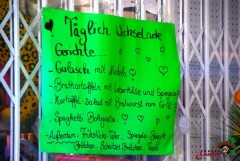 Täglich Wechselnde
Gerichte
- Gulasch mit Nudeln
- Bratkartoffeln mit Leberkäse und Spiegelei
- Kartoffel-salad mit Bratwurst vom Grill
- Spaghetti Bolognese
- Außerdem: Frühstücks
Brötchen Schnitzel Brötchen